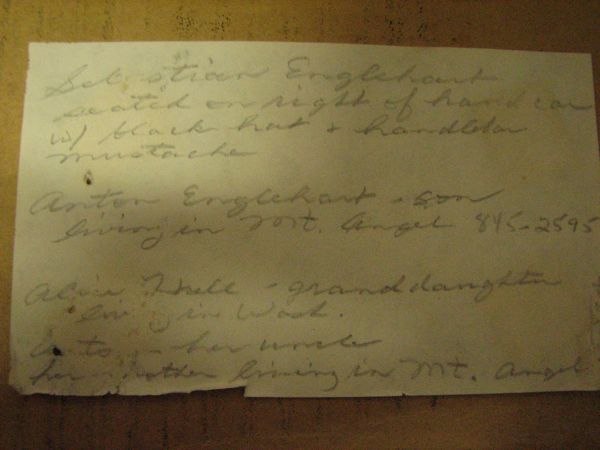 Sebastian Englehart
seated on right of hand car
w/ black hat & handlebar
mustache
Anton Englehart - son
living in Mt. Angel 845-2595
Alice - granddaughter
living in Wash.
Anton - her uncle
her mother living in Mt. Angel